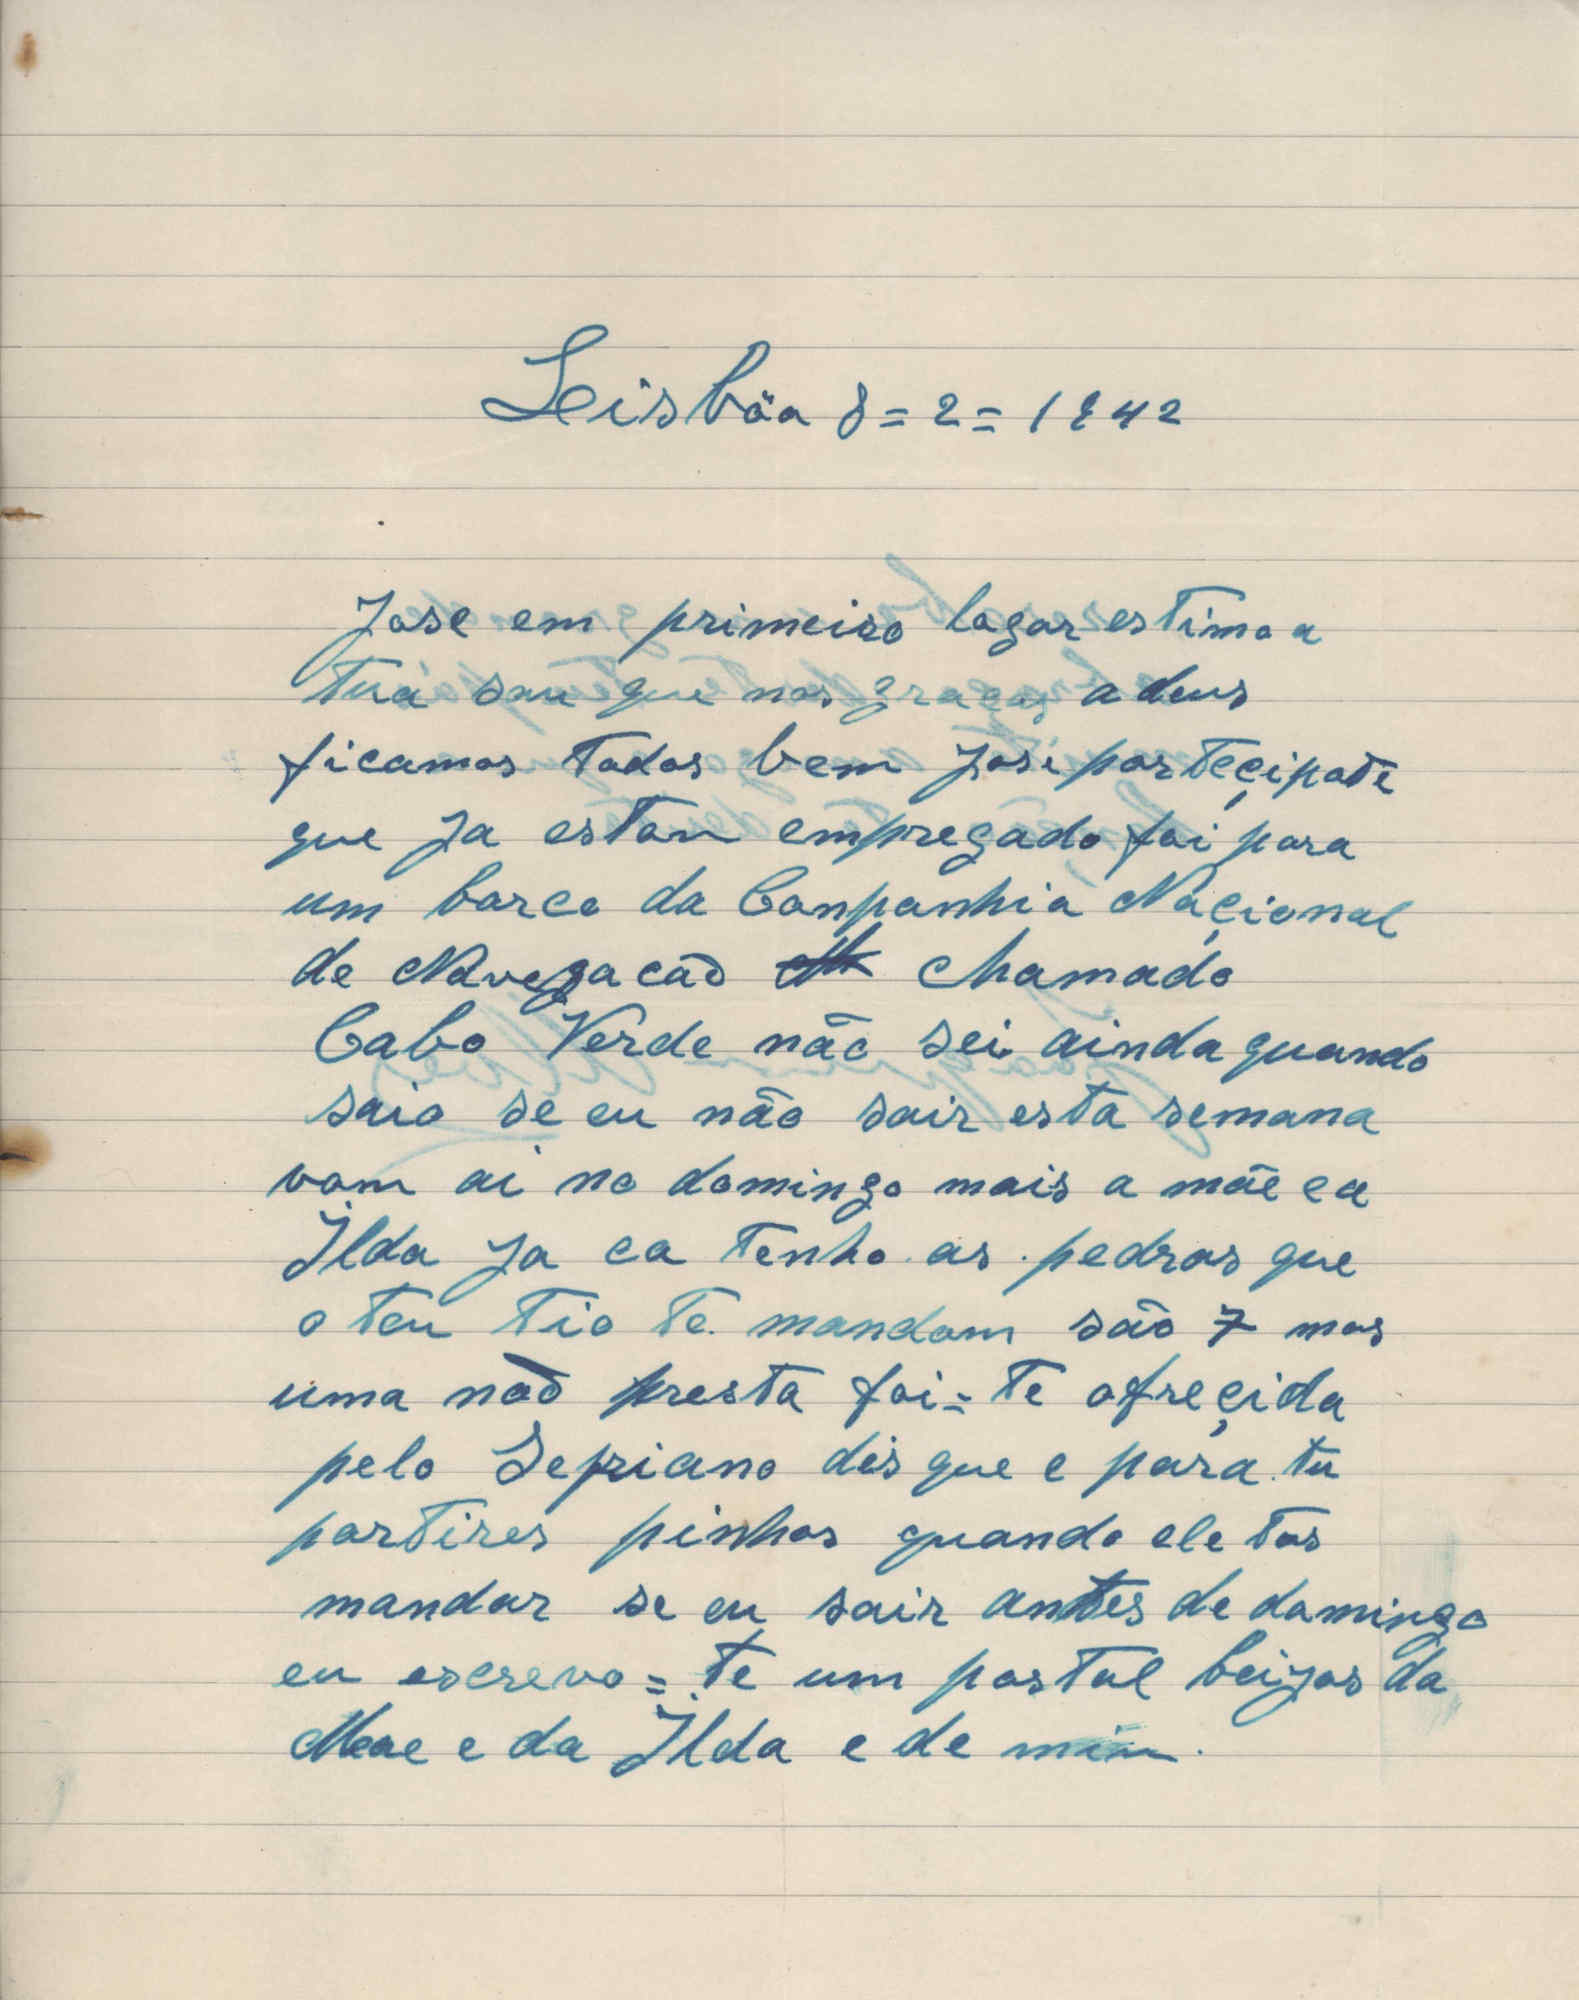 Leisbôa 8=2=1942
Jose em primeiro logar estimo a
tua sau que nos graças a deus
ficamos todos bem Jose parteçipote
que Ja estou empregado foi para
um barco da Conpanhia Naçional
de Navegacão chamado
Cabo Verde não sei ainda quando
saio se eu não sair esta semana
vom ai no domingo mais a mãe e a
Ilda Ja ca tenho as pedras que
o teu tio te mandom são 7 mas
uma não presta foi=te ofreçida
pelo Sepriano dis que e para tu
partires pinhos quando ele tos
mandar se eu sair antes de domingo
eu escrevo=te um postal beijos da
Meae e da Ilda e de mim.